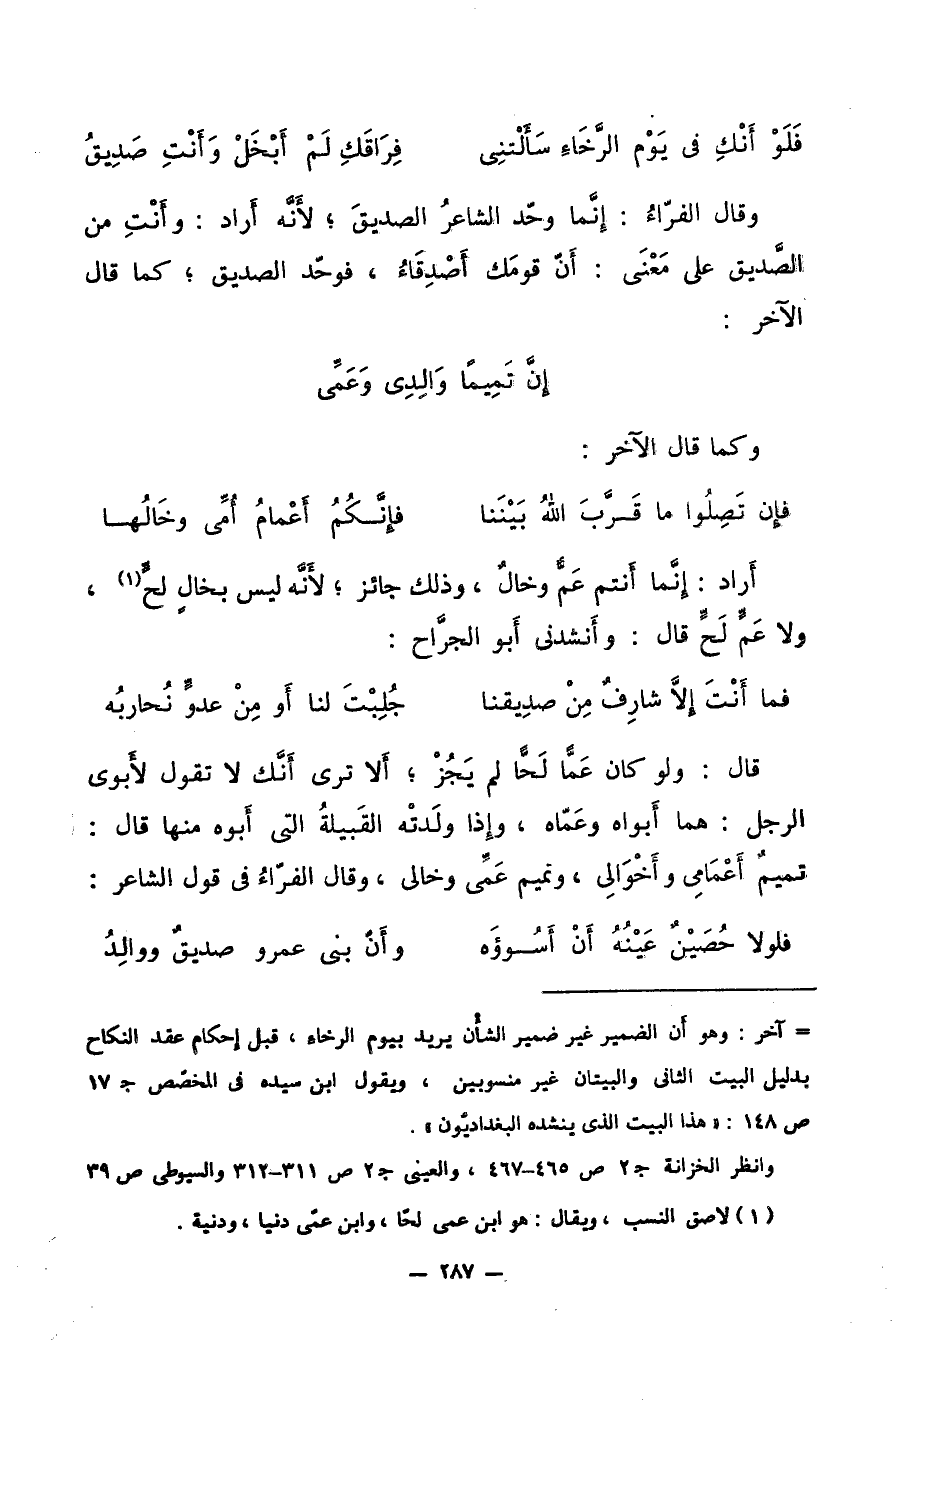 فَلَوْ أَنْكِ فى يَوْمِ الرَّخَاءِ سَأَلْتنِى فِرَاقَكِ لَمْ أَبْخَلْ وَأَنْتِ صَدِيقُ
وقال الفرّاءُ : إنَّما وحّد الشاعرُ الصديقَ ؛ لأَنَّه أَراد : وأَنْتِ من
الصَّديق على مَعْنَى : أَنّ قومَك أَصْدِقَاءُ ، فوحّد الصديق ؛ كما قال
الآخر :
إنَّ تَمِيمًا وَالِدِى وَعَمِّى
وكما قال الآخر :
فإن تَصِلُوا ما قَــرَّبَ اللهُ بَيْنَنا فإنَّــكُمُ أَعْمامُ أُمِّى وخَالُهــا
أَراد : إنَّما أَنتم عَمٌّ وخالٌ ، وذلك جائز ؛ لأَنَّه ليس بخالٍ لحٍّ(١) ،
ولا عَمٍّ لَحٍّ قال : وأَنشدنى أَبو الجرَّاح :
فما أَنْتَ إلاَّ شارِفٌ مِنْ صدِيقنا جُلِبْتَ لنا أَو مِنْ عدوٍّ نُحاربُه
قال : ولو كان عَمًّا لَحًّا لم يَجُزْ ؛ أَلا ترى أَنَّك لا تقول لأَبوى
الرجل : هما أَبواه وعَمّاه ، وإذا ولَدتْه القَبيلةُ التى أَبوه منها قال :
تميمٌ أَعْمَامِى وأَخْوَالِى ، وتميم عَمِّى وخالى ، وقال الفرّاءُ فى قول الشاعر :
فلولا حُصَيْنٌ عَيْنُهُ أَنْ أَسُــوؤَه وأَنّ بنى عمرو صديقٌ ووالِدُ
= آخر : وهو أن الضمير غير ضمير الشأن يريد بيوم الرخاء ، قبل إحكام عقد النكاح
بدليل البيت الثانى والبيتان غير منسوبين ، ويقول ابن سيده فى المخصّص ج ١٧
ص ١٤٨ : « هذا البيت الذى ينشده البغداديّون » .
وانظر الخزانة ج٢ ص ٤٦٥–٤٦٧ ، والعينى ج٢ ص ٣١١–٣١٢ والسيوطى ص ٣٩
(١) لاصق النسب ، ويقال : هو ابن عمى لحًا ، وابن عمّى دنيا ، ودنية .
– ٢٨٧ –